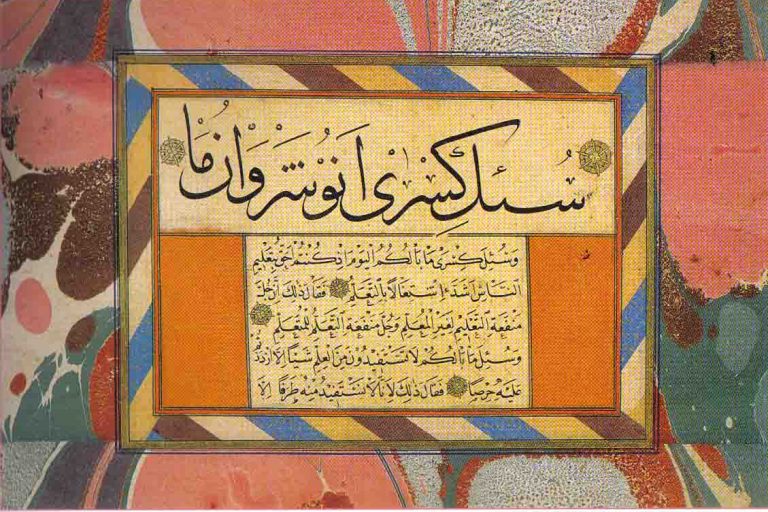 سئل كسرى انوشروان ما
وسئل كسرى ما بالكم اليوم اذ كنتم احق بتعليم
الناس اشد اشتغالا بالتعلم فقال ذلك لان جل
منفعة التعليم لغير المعلم وجل منفعة التعلم للمتعلم
وسئل ما بالكم لا تستفيدون من العلم شيئا الا ازددتم
عليه حرصا فقال ذلك لانا لا نستفيد منه طرفا الا